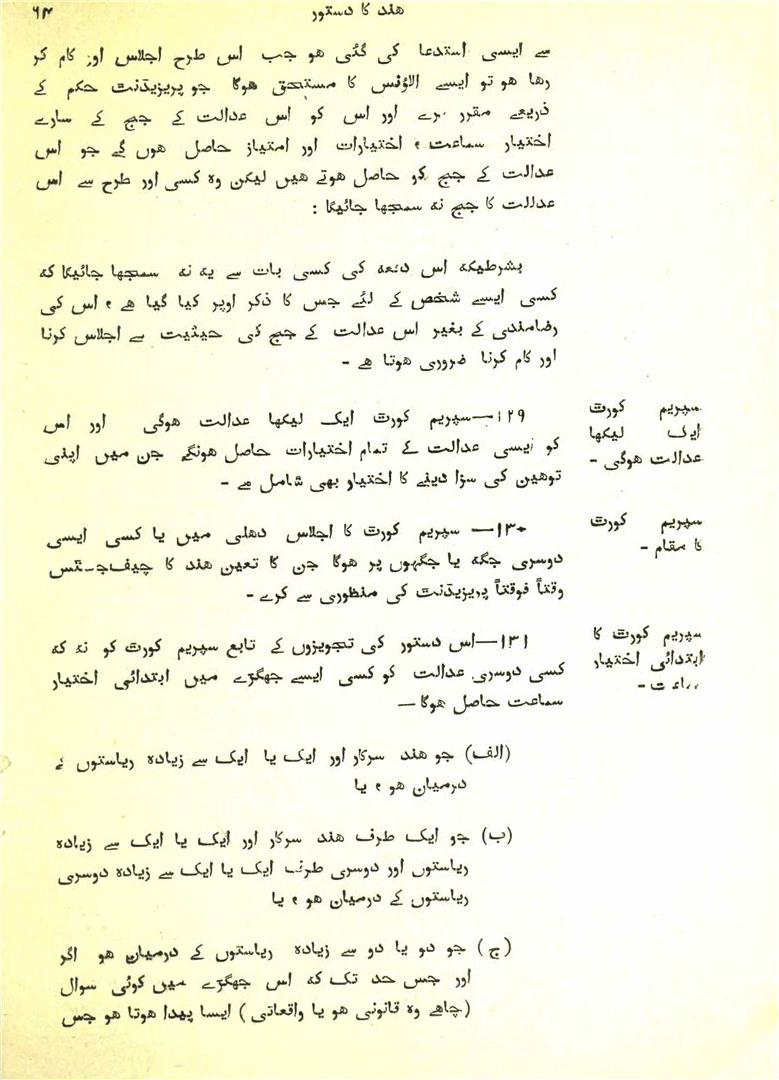 هند کا دستور
۶۴
سے ایسی استدعا کی گئی هو جب اس طرح اجلاس اور کام کر
رها هو تو ایسے الاؤنس کا مستحق هوگا جو پریزیڈنٹ حکم کے
ذریعے مقرر کرے اور اس کو اس عدالت کے جج کے سارے
اختیار سماعت ، اختیارات اور امتیاز حاصل هوں گے جو اس
عدالت کے جج کو حاصل هوتے هیں لیکن وہ کسی اور طرح سے اس
عدالت کا جج نه سمجها جائیگا :
بشرطیکه اس دفعه کی کسی بات سے یه نه سمجها جائیگا که
کسی ایسے شخص کے لئے جس کا ذکر اوپر کیا گیا هے ، اس کی
رضامندی کے بغیر اس عدالت کے جج کی حیثیت سے اجلاس کرنا
اور کام کرنا ضروری هوتا هے -
سپریم کورٹ
ایک لیکها
عدالت هوگی -
۱۲۹—سپریم کورٹ ایک لیکها عدالت هوگی اور اس
کو ایسی عدالت کے تمام اختیارات حاصل هونگے جن میں اپنی
توهین کی سزا دینے کا اختیار بهی شامل هے -
سپریم کورٹ
کا مقام -
۱۳۰— سپریم کورٹ کا اجلاس دهلی میں یا کسی ایسی
دوسری جگه یا جگہوں پر هوگا جن کا تعین هند کا چیف جسٹس
وقتاً فوقتاً پریزیڈنٹ کی منظوری سے کرے -
سپریم کورٹ کا
ابتدائی اختیار
سماعت -
۱۳۱—اس دستور کی تجویزوں کے تابع سپریم کورٹ کو نه که
کسی دوسری عدالت کو کسی ایسے جهگڑے میں ابتدائی اختیار
سماعت حاصل هوگا —
(الف) جو هند سرکار اور ایک یا ایک سے زیادہ ریاستوں کے
درمیان هو ، یا
(ب) جو ایک طرف هند سرکار اور ایک یا ایک سے زیادہ
ریاستوں اور دوسری طرف ایک یا ایک سے زیادہ دوسری
ریاستوں کے درمیان هو ، یا
(ج) جو دو یا دو سے زیادہ ریاستوں کے درمیان هو اگر
اور جس حد تک که اس جهگڑے میں کوئی سوال
(چاهے وہ قانونی هو یا واقعاتی) ایسا پیدا هوتا هو جس